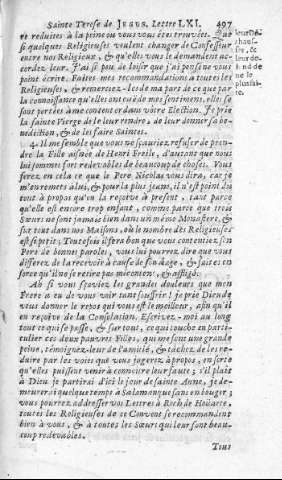 Sainte Terese de JESUS. Lettre LXI. 497
re reduites à la peine ou vous vous étes trouvées. Que
si quelques Religieuses veulent changer de Confesseur
entre nos Religieux, & qu'elles vous le demandent ac-
cordez leur. J'ai si peu de loisir que j'ai pensé ne vous
point écrire. Faites mes recommandations à toutes les
Religieuses, & remerciez-les de ma part de ce que par
la connaissance qu'elles ont eüe de mes sentimens, elles se
sont portées à me contenter dans vôtre Election. Je prie
la sainte Vierge de le leur rendre, de leur donner sa be-
nediction, & de les faire Saintes.
4. Il me semble que vous ne sauriez refuser de pren-
dre la Fille aisnée de Henri Freile, d'autant que nous
lui sommes fort redevables de beaucoup de choses. Vous
ferez en cela ce que le Pere Nicolas vous dira, car je
m'en remets à lui, & pour la plus jeune, il n'est point du
tout à propos qu'on la reçoive à present, tant parce
qu'elle est encore trop enfant, comme parce que trois
Sœurs ne sont jamais bien dans un même Monastere, &
sur tout dans nos Maisons, où le nombre des Religieuses
est si petit; Toutesfois il sera bon que vous contentiez son
Pere de bonnes paroles, vous lui pourrez dire que vous
differez de la recevoir à cause de son âge, & faites en
sorte qu'il ne se retire pas mécontent, & affligé.
Ah si vous sçaviez les grandes douleurs que mon
Frere a eu de vous voir tant souffrir! je prie Dieu de
vous donner le repos qui vous est le meilleur, afin qu'il
en reçoive de la Consolation. Ecrivez-moi au long
tout ce qui se passe, & sur tout, ce qui touche en parti-
culier ces deux pauvres Filles, qui me font une grande
peine, témoignez-leur de l'amitié, & tâchez de les re-
duire par les voies que vous jugerez à propos, en sorte
qu'elles puissent venir à connoître leur faute; s'il plait
à Dieu je partirai d'ici le jour de sainte Anne, je de-
meurerai quelque temps à Salamanque sans en bouger;
vous pourrez addresser vos Lettres à Rich de Hüarte,
toutes les Religieuses de ce Convent se recommandent
bien à vous, & à toutes les Sœurs qui leur sont beau-
coup redevables.
Tout